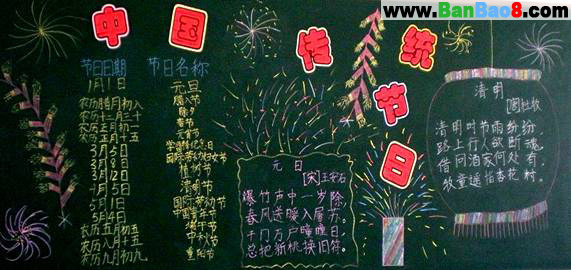 www.BanBao8.com
中国传统节日
节日日期 节日名称
1月1日 元旦
农历腊月初八 腊八节
农历十二月三十 除夕
农历正月初一 春节
农历正月十五 元宵节
3月5日 学雷锋纪念日
3月8日 国际劳动妇女节
3月12日 植树节
4月5日 清明节
5月1日 国际劳动节
5月4日 中国青年节
农历五月初五 端午节
农历八月十五 中秋节
农历九月初九 重阳节
元日
[宋]王安石
爆竹声中一岁除
春风送暖入屠苏.
千门万户曈曈日.
总把新桃换旧符.
清明
[唐]杜牧
清明时节雨纷纷
路上行人欲断魂.
借问酒家何处有.
牧童遥指杏花村.